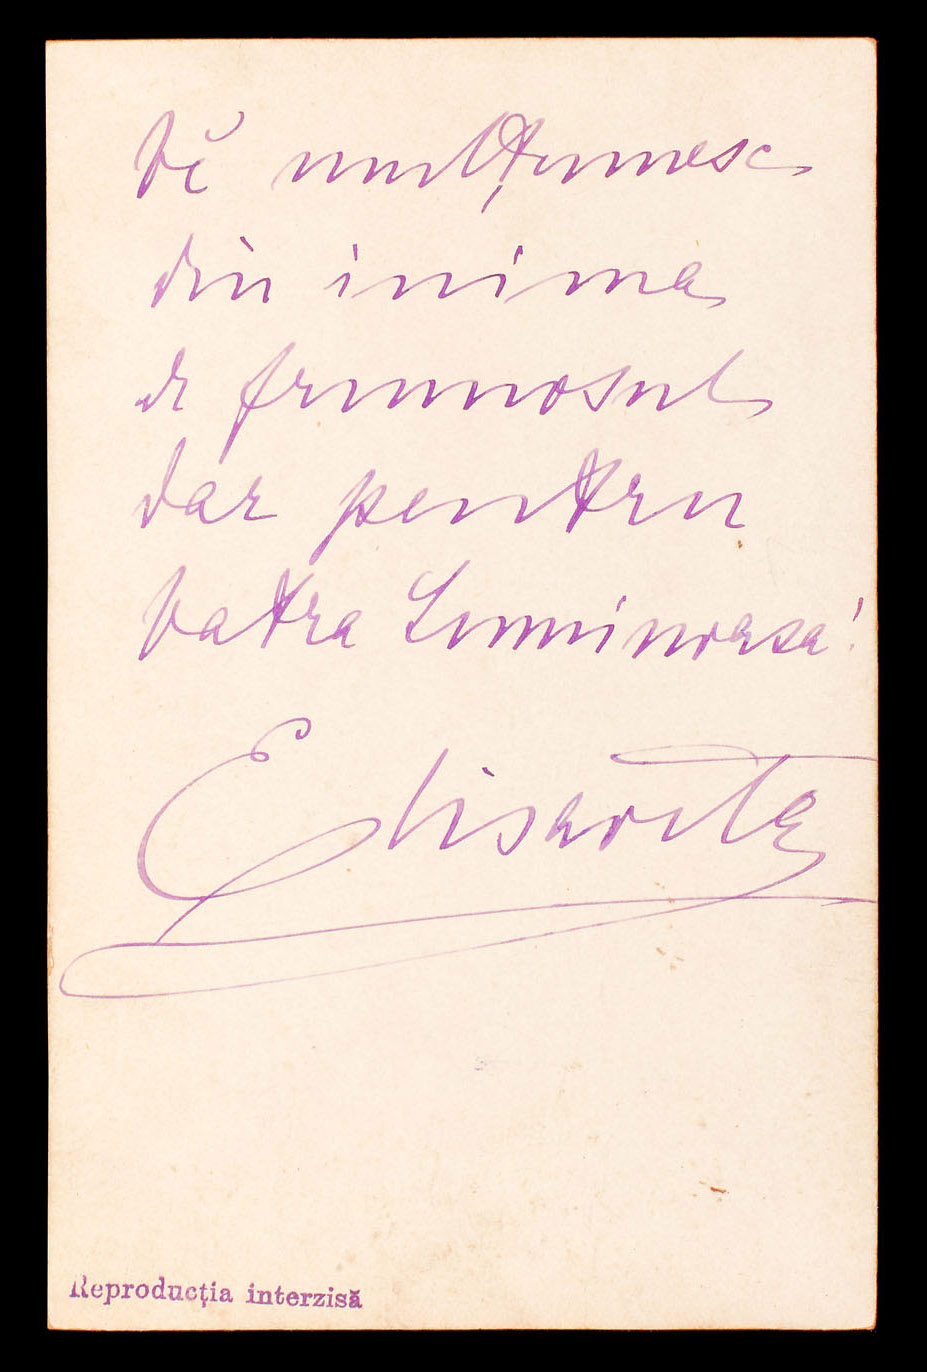 Vĕ mulțumesc
din inima
de frumosul
dar pentru
Vatra Luminoasa!
Elisaveta
Reproducția interzisă